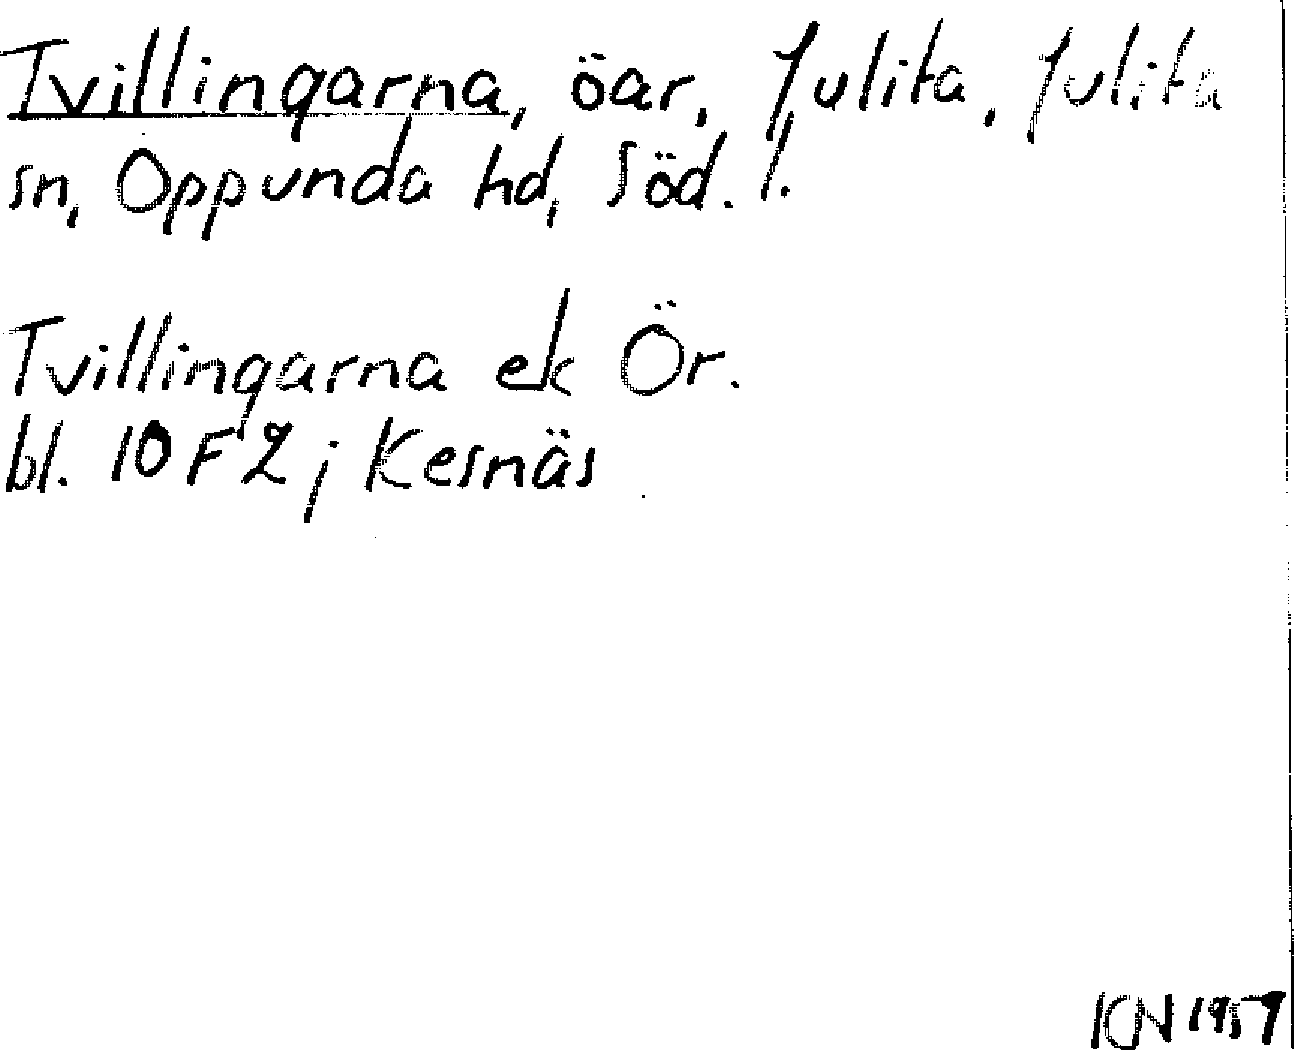 Tvillingarna, öar, Julita, Julita
sn, Oppunda hd, Söd. l.
Tvillingarna ek Ör.
bl. 10F2; Kesnäs
KN 1957